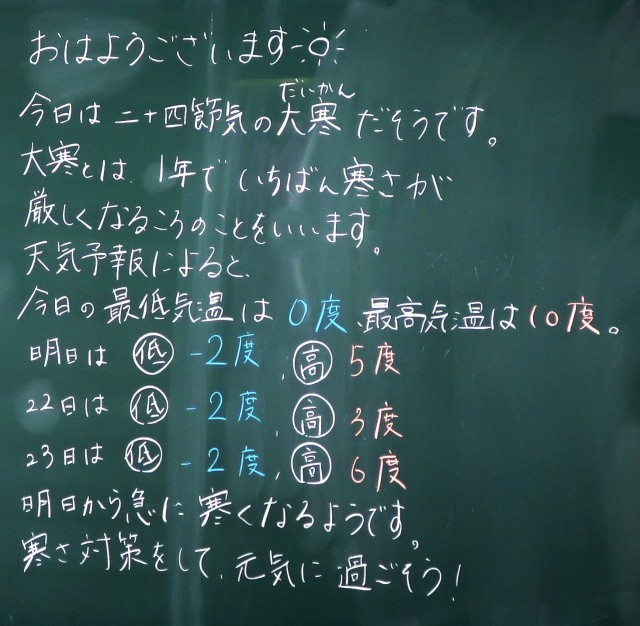 おはようございます
今日は二十四節気の大寒だそうです。
だいかん
大寒とは、1年でいちばん寒さが
厳しくなるころのことをいいます。
天気予報によると、
今日の最低気温は0度、最高気温は10度。
明日は 低 -2度、高 5度
22日は 低 -2度、高 3度
23日は 低 -2度、高 6度
明日から急に寒くなるようです。
寒さ対策をして、元気に過ごそう!